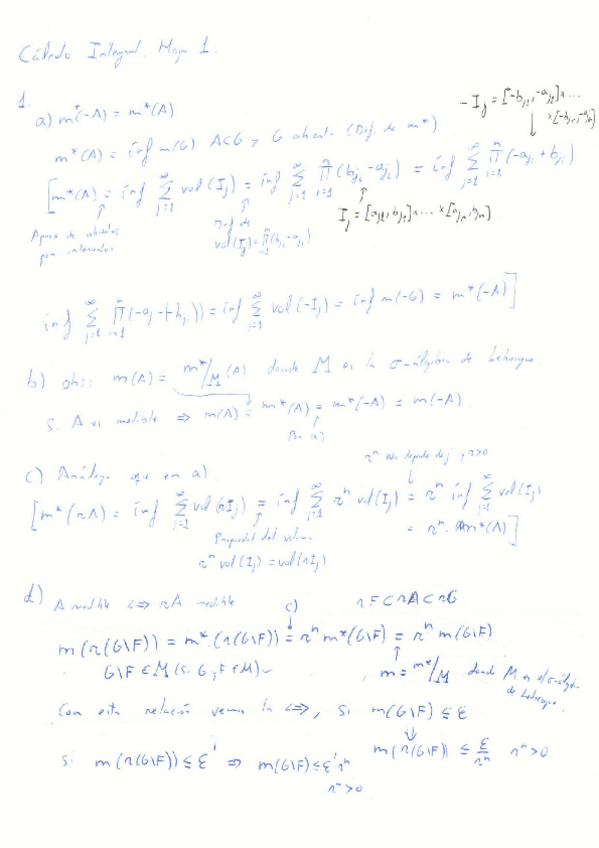 Cálculo Integral. Hoja 1.
1.
a) m*(-A) = m*(A)
-I_j = [-b_{j1}, -a_{j1}] x ... x [-b_{jn}, -a_{jn}]
m*(A) = inf m(G) A⊂G y G abierto (Def. de m*)
[m*(A) = inf ∑_{j=1}^∞ vol(I_j) = inf ∑_{j=1}^∞ ∏_{i=1}^n (b_{ji} - a_{ji}) = inf ∑_{j=1}^∞ ∏_{i=1}^n (-a_{ji} + b_{ji})
Aprox de abiertos por intervalos
Def de vol(I_j) = ∏_{i=1}^n (b_{ji} - a_{ji})
I_j = [a_{j1}, b_{j1}] x ... x [a_{jn}, b_{jn}]
inf ∑_{j=1}^∞ ∏_{i=1}^n (-a_j + b_{ji})) = inf ∑_{j=1}^∞ vol(-I_j) = inf m(-G) = m*(-A)]
b) obs: m(A) = m*/_M (A) donde M es la σ-álgebra de Lebesgue.
Si A es medible ⇒ m(A) = m*(A) = m*(-A) = m(-A).
Por a)
r^n no depende de j y r>0
c) Análogo que en a)
[m*(rA) = inf ∑_{j=1}^∞ vol(rI_j) = inf ∑_{j=1}^∞ r^n vol(I_j) = r^n inf ∑_{j=1}^∞ vol(I_j)
= r^n · m*(A)]
Propiedad del volumen
r^n vol(I_j) = vol(rI_j)
d) A medible ⇔ rA medible
c)
rF⊂rA⊂rG
m(r(G\F)) = m*(r(G\F)) = r^n m*(G\F) = r^n m(G\F)
G\F ∈ M (si G y F ∈ M)
, m = m*/_M donde M es el σ-álgebra de Lebesgue.
Con esta relación vemos la ⇔, si m(G\F) ≤ ε
⇓
m(r(G\F)) ≤ ε/r^n r^n>0
si m(r(G\F)) ≤ ε' ⇒ m(G\F) ≤ ε' r^n
r^n>0